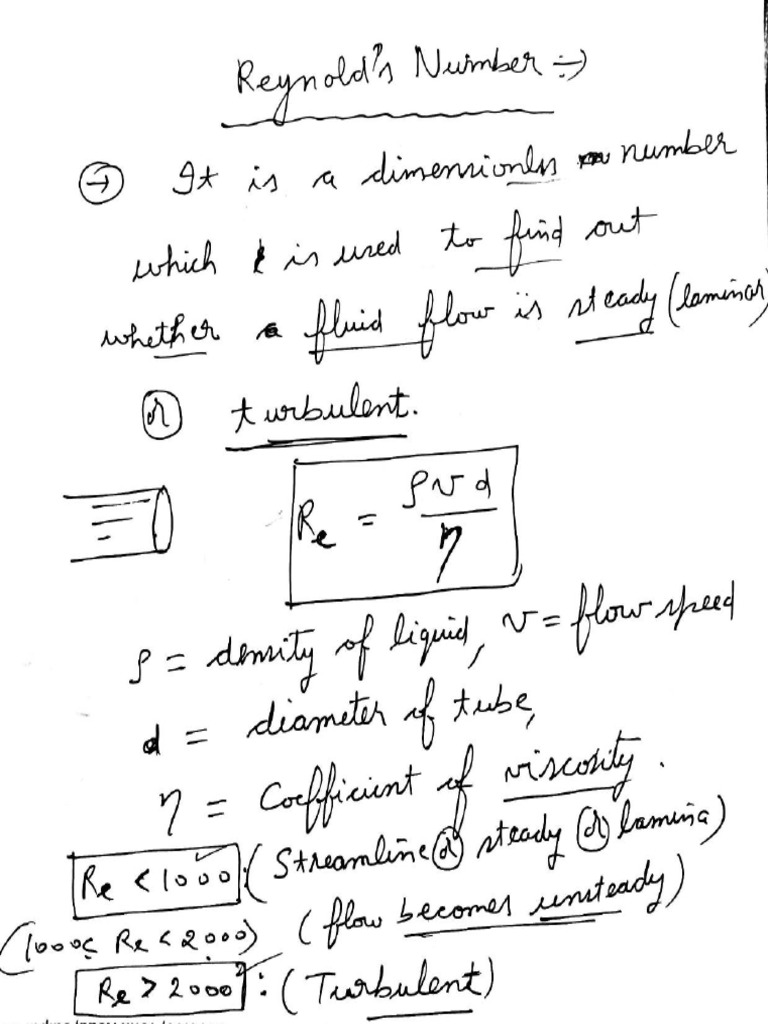 Reynold's Number ÷)
→ It is a dimensionless number
which is used to find out
whether a fluid flow is steady (laminar)
or turbulent.
Re = ρvd/η
ρ = density of liquid, v = flow speed
d = diameter of tube,
η = Coefficient of viscosity.
Re < 1000 : (Streamline or steady or lamina)
(1000 < Re < 2000) (flow becomes unsteady)
Re > 2000 : (Turbulent)